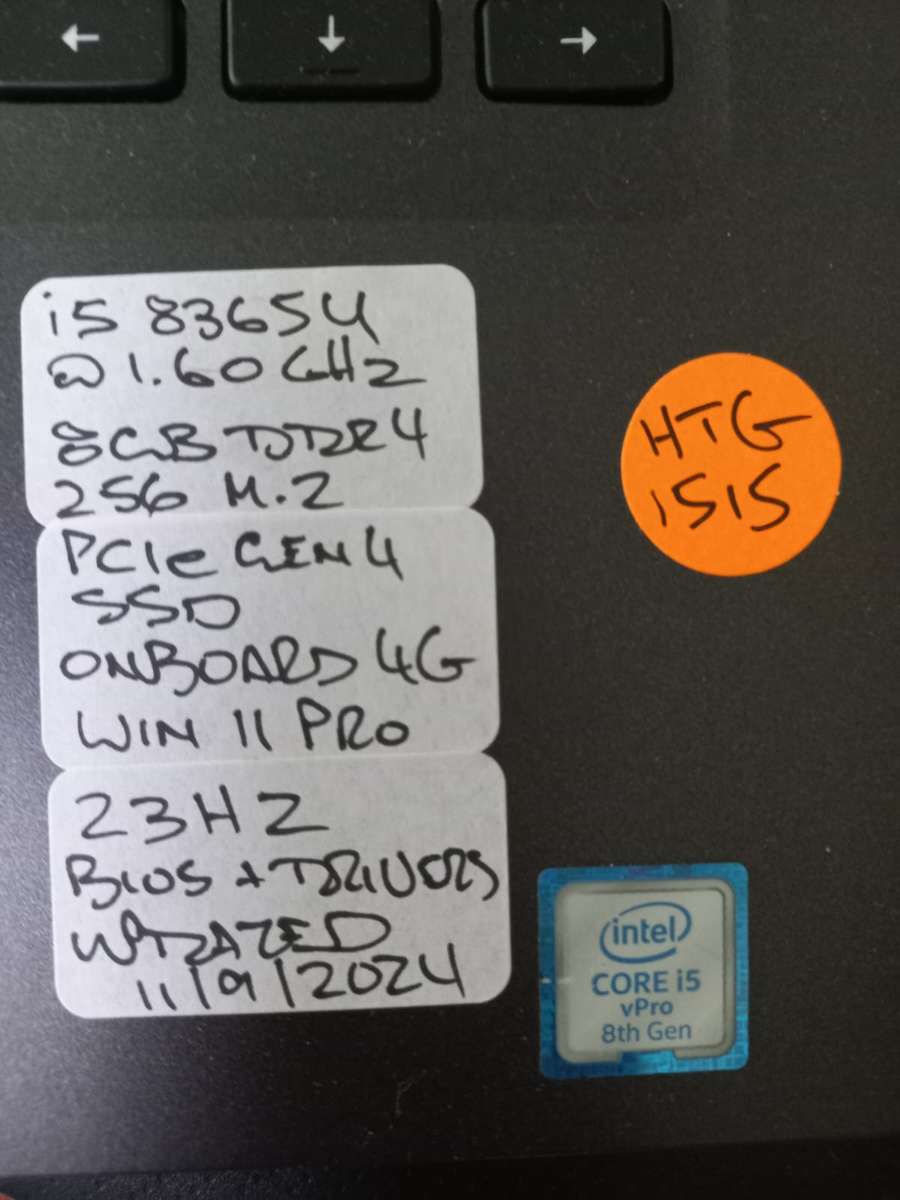 ←
↓
→
i5 8365U
@ 1.60 GHz
8GB DDR4
256 M.2
PCIe GEN 4
SSD
ONBOARD 4G
WIN 11 PRO
23H2
BIOS + DRIVERS
UPDATED
11/9/2024
HTG
1515
intel
CORE i5
vPro
8th Gen